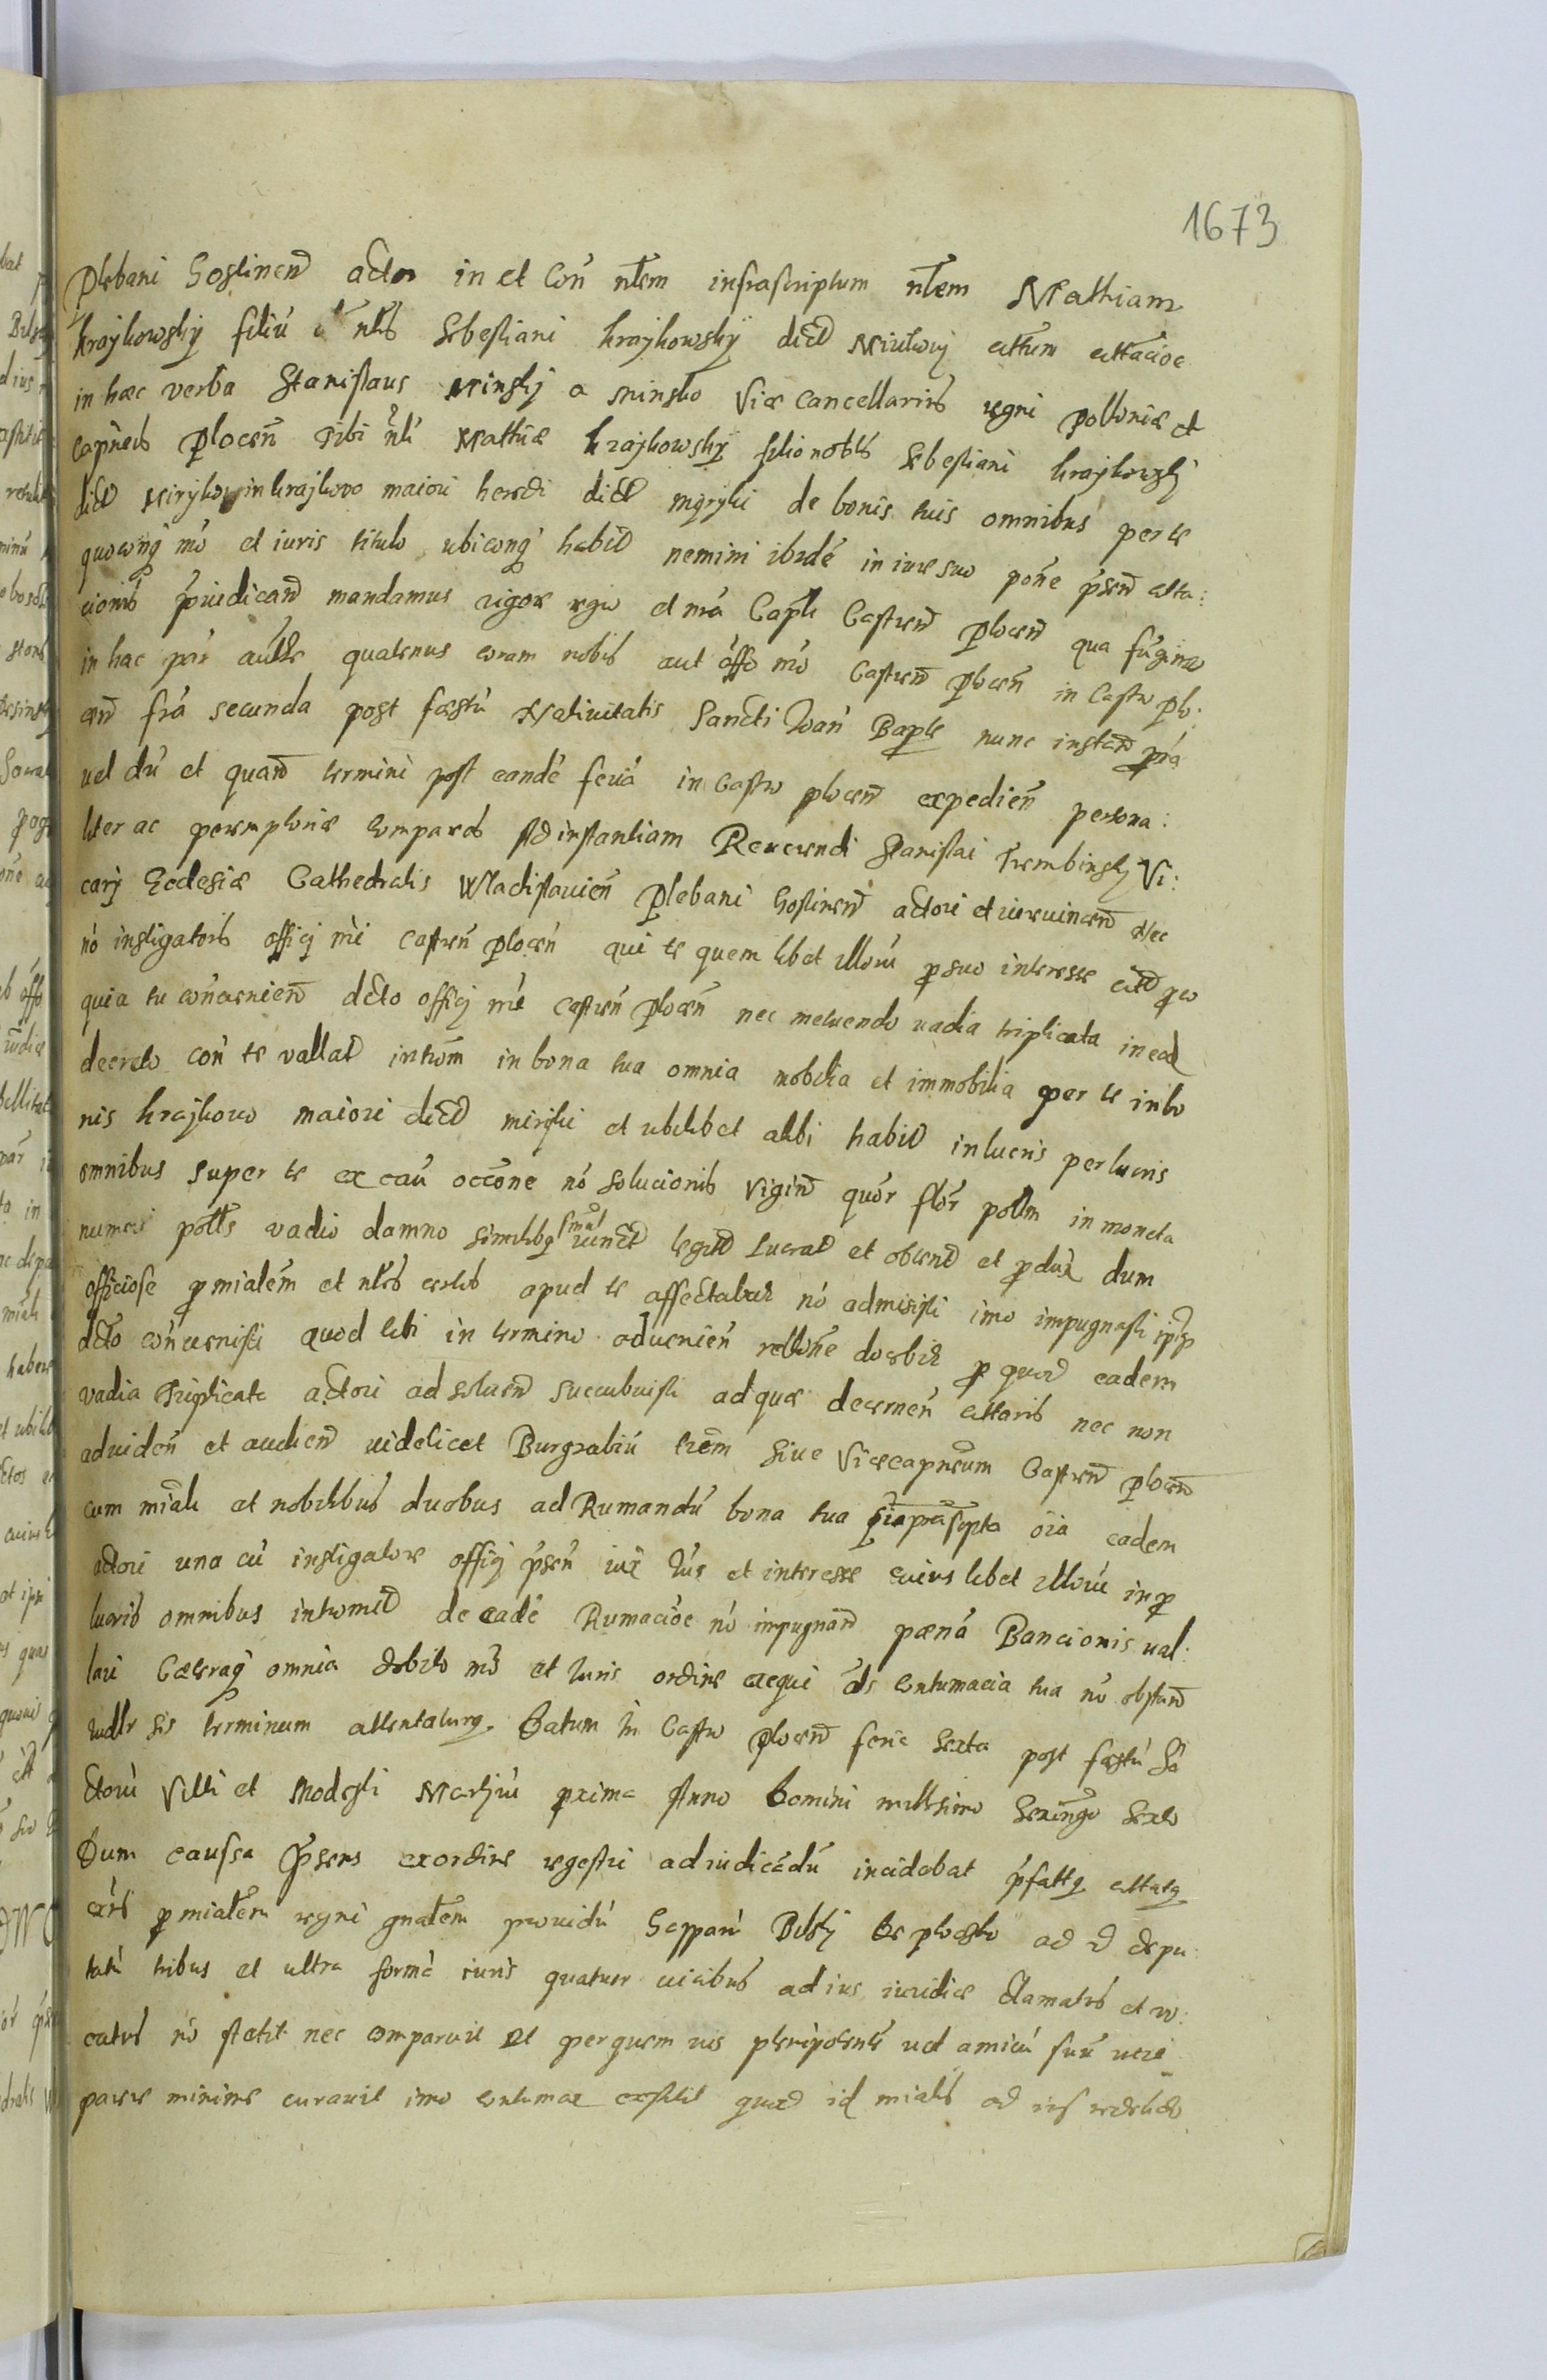 1673
Plebani Gostinen actor in et con nlem infrascriptum nlem Mathiam
krajkowskÿ filiu nlis Sebestiani krajkowskÿ dict cittum cittacioe
in hæc verba Stanislaus Minskj a minsko Vice Cancellarius regni polloniæ et
Capneus plocen Tibi nli Mathiæ krajkowskÿ filio nobls Sebestiani krajkowskj
dict in krajkowo maiori heredi dict de bonis tuis omnibus per te
quocunq mo et iuris titulo ubicunq habit nemini ibide in iure suo pone psen citta:
cionis piudicand mandamus rigore regio et mea Capli Castren plocen qua fugimur
in hac par aulte quatenus coram nobis aut offo mo Castren plocen in Castro plo:
cen fria secunda post festu Nativitatis Sancti Joan Bapte nunc instan pria
vel du et quand termini post eande feria in Castro plocen expedien persona:
liter ac peremptoriæ compareas ad instantiam Reverendi Stanislai Trembinskj Vi:
carÿ Ecclesiæ Cathedralis Wladislavien Plebani Gostinen actori et Nec
no instigatoris officj mei Castren plocen qui te quem libet illoru p suo interesse citt peo
quia tu dcto officj mei castren plocen nec metuendo vadia triplicata in eod
decreto con te vallat introm in bona tua omnia mobilia et immobilia per te in bo
nis krajkowo maiori dict et ubilibet alibi habit in lucris per lucris
omnibus super te ex cau occone no solucionis vigint quor flor pollm in moneta
numeri polls vadio damno similibq simul iunct legitt lucrat et obtent et pdux dum
officiose p mialem et nles certos apud te affectabat no admisisti imo impugnasti ipq
dcto convenisti quod tibi in termino advenien rellone docebit p quod eadem
vadia Triplicata actori ad solvend succubuisti ad quæ decernen cittaris nec non
ad viden et audiend videlicet Burgrabiu trem Sive Vicecapneum Castren plocen
cum miali et nobilibus duobus ad Rumandu bona tua oia eadem
actori una cu instigatore officj psen iux Jus et interesse cuius libet illoru in p
lucris omnibus intromitt de eade Rumacioe no impugnand pæna Bancionis val:
lari Cæteraq omnia debito mo et Juris ordine exequi als contumacia tua no obstand
iudlr sis terminum attentaturq. Datum in Castro plocen feria Sexta post festu Sa
ctoru Vitti et Modesti Martjru pxima Anno Domini millesimo Sexingo Sexto
Dum caussa Psens ex ordine regestri ad iudicadu incidebat pfattq cittatq
exns p mialem regni gnalem providu Gasparu de plocko ad depu:
tatu tribus et ultra forma iuris quatuor vicibus ad ius iuridice clamatus et vo:
catus no stetit nec comparuit et per quem vis plenipotente vel amicu suu
parere minime curavit imo contumax exstitit quod id mialis ad ius